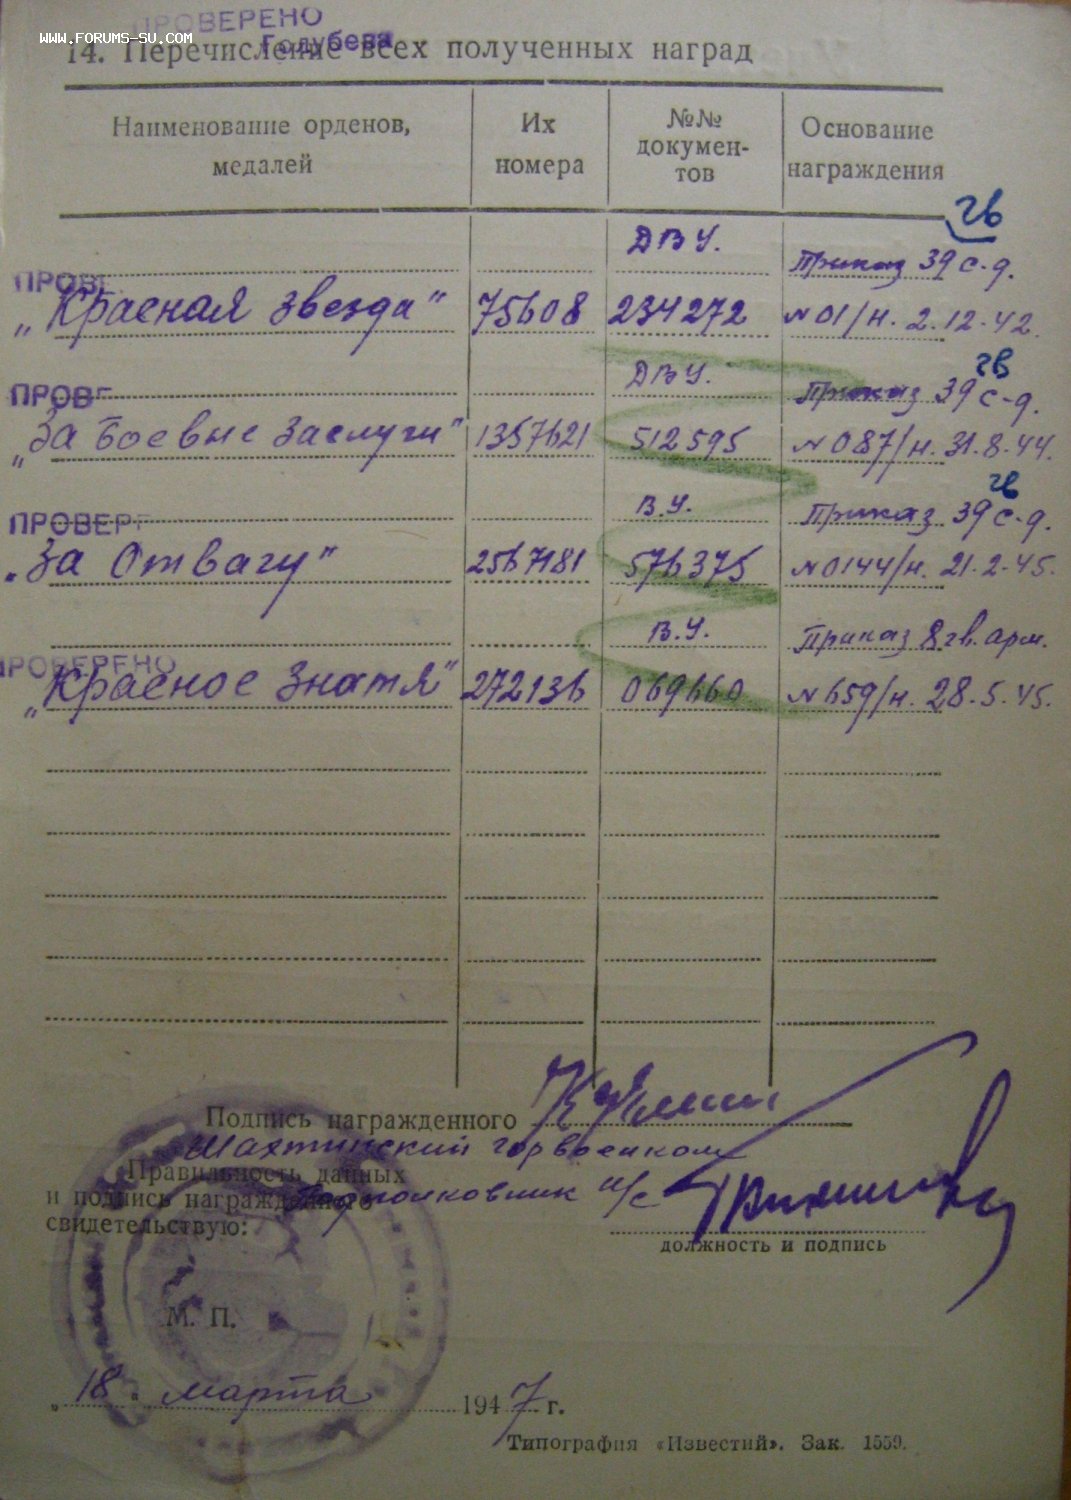 ПРОВЕРЕНО
WWW.FORUMS-SU.COM
Голубева
14. Перечисление всех полученных наград
Наименование орденов, медалей
Их номера
№№ докумен-тов
Основание награждения
гв
ДВУ.
Приказ 39 с-д.
ПРОВЕ
„Красная звезда" 75608 234272 №01/н. 2.12.42.
гв
ДВУ.
Приказ 39 с-д.
ПРОВЕ
„За Боевые Заслуги" 1357621 512595 №087/н. 31.8.44.
гв
В.У.
Приказ 39 с-д.
ПРОВЕРЕ
„За Отвагу" 2567181 576375 №0144/н. 21.2.45.
В.У.
Приказ 8 гв. арм.
ПРОВЕРЕНО
„Красное Знамя" 272136 069660 №659/н. 28.5.45.
Подпись награжденного
Шахтинский горвоенком
Правильность данных
и подпись награжденного
Подполковник и/с
свидетельствую:
должность и подпись
М. П.
„18" марта 1947 г.
Типография «Известий». Зак. 1559.